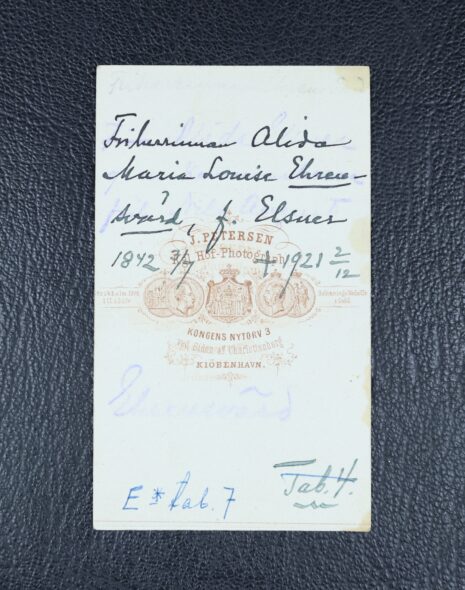 Friherrinnan Alida
Maria Louise Ehren-
svärd, f. Elsner
J. PETERSEN
Hof-Photograph
1842 3/7 † 1921 2/12
KONGENS NYTORV 3
ved Siden af Charlottenborg
KIÖBENHAVN.
Ehrensvärd
E* tab. 7
Tab. 4.